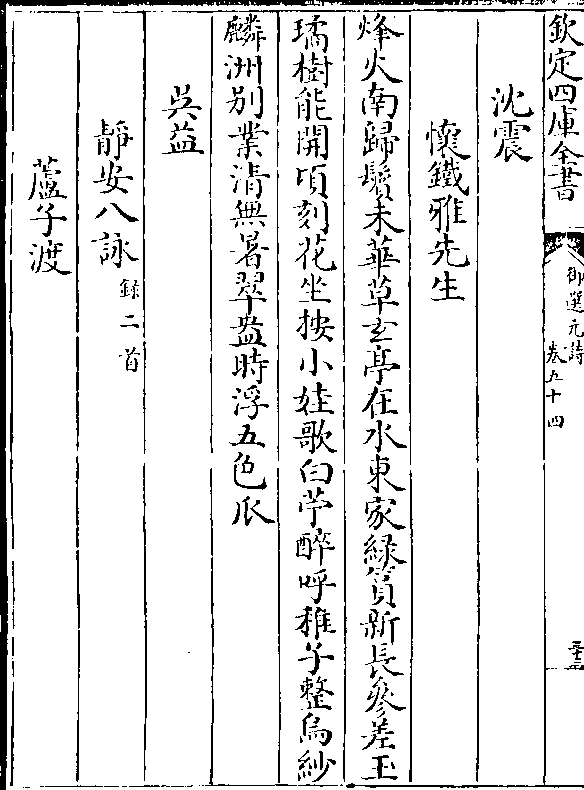 欽定四庫全書
御選元詩
卷五十四
沈震
懷鐵雅先生
烽火南歸鬢未華草玄亭在水東家綠筼新長參差玉
璚樹能開頃刻花坐按小娃歌白苧醉呼稚子整烏紗
麟洲别業清無暑翠盎時浮五色瓜
吳益
静安八詠錄二首
蘆子渡